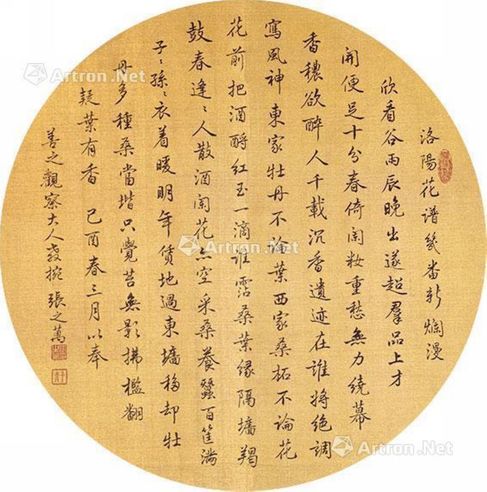 洛陽花譜幾番新爛漫
欣看谷雨辰晚出遂超羣品上才
開便足十分春倚闌妝重愁無力繞幕
香穠欲醉人千載沉香遺迹在誰將絕調
寫風神東家牡丹不論葉西家桑柘不論花
花前把酒酹紅玉一滴誰霑桑葉緣隔墻羯
鼓春逢々人散酒闌花亦空采桑養蠶百筐滿
子々孫々衣着暖明年賃地過東墻移却牡
丹多種桑當堦只覺苔無影拂檻翻
疑葉有香 己酉春三月以奉
善之觀察大人教 張之萬
Artron.Net
Artron.Net
Artron.Net
Artron.Net